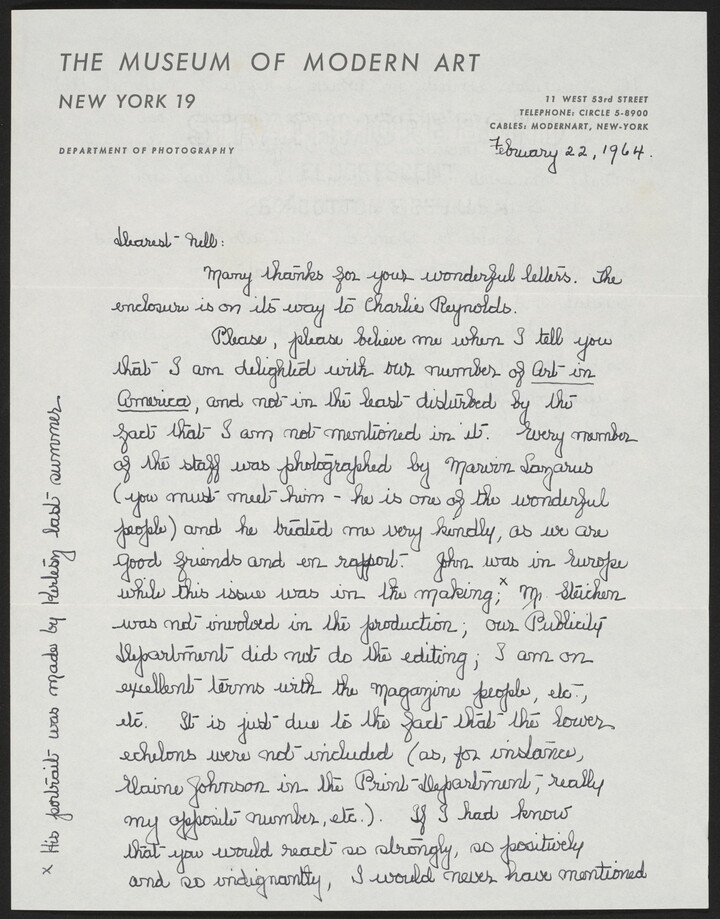 THE MUSEUM OF MODERN ART
NEW YORK 19
11 WEST 53rd STREET
TELEPHONE: CIRCLE 5-8900
CABLES: MODERNART, NEW-YORK
DEPARTMENT OF PHOTOGRAPHY
February 22, 1964.
Dearest Nell:
Many thanks for your wonderful letters. The
enclosure is on its way to Charlie Reynolds.
Please, please believe me when I tell you
that I am delighted with our number of Art in
America, and not in the least disturbed by the
fact that I am not mentioned in it. Every member
of the staff was photographed by Marvin Lazarus
(you must meet him - he is one of the wonderful
people) and he treated me very kindly, as we are
good friends and en rapport. John was in Europe
while this issue was in the making;x Mr. Steichen
was not involved in the production; our Publicity
Department did not do the editing; I am on
excellent terms with the magazine people, etc.,
etc. It is just due to the fact that the lower
echelons were not included (as, for instance,
Elaine Johnson in the Print Department, really
my opposite number, etc.). If I had know
that you would react so strongly, so positively
and so indignantly, I would never have mentioned
x His portrait was made by Kertesz last summer